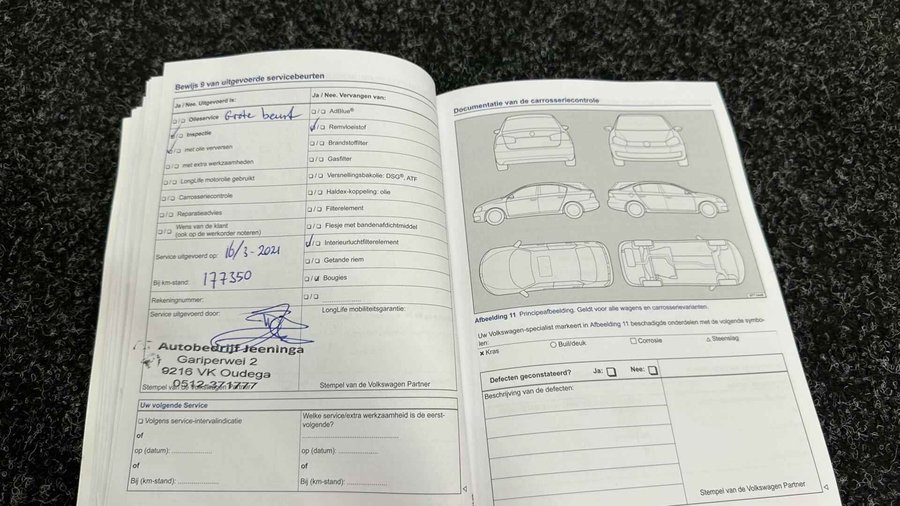 Bewijs 9 van uitgevoerde servicebeurten
Ja / Nee. Uitgevoerd is:
☐/☐ Olieservice Grote beurt
☑/☐ Inspectie
☑/☐ met olie verversen
☐/☐ met extra werkzaamheden
☐/☐ LongLife motorolie gebruikt
☐/☐ Carrosseriecontrole
☐/☐ Reparatieadvies
☐/☐ Wens van de klant
(ook op de werkorder noteren)
Service uitgevoerd op: 16/3-2021
Bij km-stand: 177350
Rekeningnummer:
Service uitgevoerd door:
Autobedrijf Jeeninga
Gariperwei 2
9216 VK Oudega
0512-371777
Stempel van de Volkswagen Partner
Ja / Nee. Vervangen van:
☐/☐ AdBlue®
☑/☐ Remvloeistof
☐/☐ Brandstoffilter
☐/☐ Gasfilter
☐/☐ Versnellingsbakolie: DSG®, ATF
☐/☐ Haldex-koppeling: olie
☐/☐ Filterelement
☐/☐ Flesje met bandenafdichtmiddel
☑/☐ Interieurluchtfilterelement
☐/☐ Getande riem
☐/☑ Bougies
☐/☐ ....................
LongLife mobiliteitsgarantie:
Stempel van de Volkswagen Partner
Uw volgende Service
☐ Volgens service-intervalindicatie
of
op (datum): ....................
of
Bij (km-stand): ....................
Welke service/extra werkzaamheid is de eerst-
volgende?
....................
op (datum): ....................
of
Bij (km-stand): ....................
Documentatie van de carrosseriecontrole
Afbeelding 11 Principeafbeelding. Geldt voor alle wagens en carrosserievarianten.
Uw Volkswagen-specialist markeert in Afbeelding 11 beschadigde onderdelen met de volgende symbo-
len:
× Kras ○ Buil/deuk □ Corrosie △ Steenslag
Defecten geconstateerd? Ja: ☐ Nee: ☐
Beschrijving van de defecten:
Stempel van de Volkswagen Partner